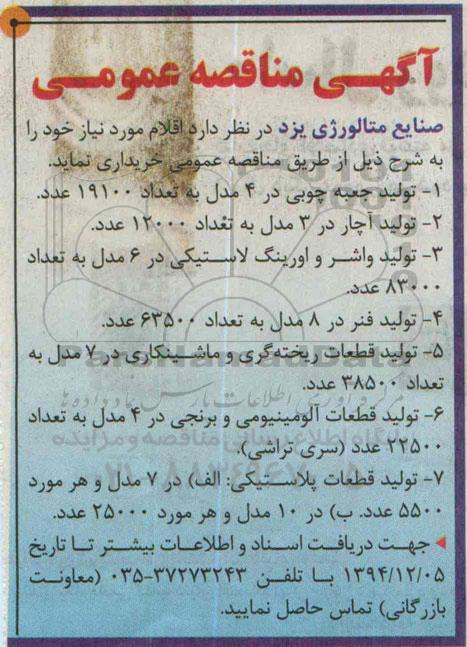 آگهی مناقصه عمومی
صنایع متالورژی یزد در نظر دارد اقلام مورد نیاز خود را
به شرح ذیل از طریق مناقصه عمومی خریداری نماید.
۱- تولید جعبه چوبی در ۴ مدل به تعداد ۱۹۱۰۰ عدد.
۲- تولید آچار در ۳ مدل به تعداد ۱۲۰۰۰ عدد.
۳- تولید واشر و اورینگ لاستیکی در ۶ مدل به تعداد
۸۳۰۰۰ عدد.
۴- تولید فنر در ۸ مدل به تعداد ۶۳۵۰۰ عدد.
۵- تولید قطعات ریخته‌گری و ماشینکاری در ۷ مدل به
تعداد ۳۸۵۰۰ عدد.
۶- تولید قطعات آلومینیومی و برنجی در ۴ مدل به تعداد
۲۲۵۰۰ عدد (سری تراشی).
۷- تولید قطعات پلاستیکی: الف) در ۷ مدل و هر مورد
۵۵۰۰ عدد. ب) در ۱۰ مدل و هر مورد ۲۵۰۰۰ عدد.
جهت دریافت اسناد و اطلاعات بیشتر تا تاریخ
۱۳۹۴/۱۲/۰۵ با تلفن ۳۷۲۷۳۲۴۳-۰۳۵ (معاونت
بازرگانی) تماس حاصل نمایید.
ParsNamadData
مرکز فرآوری اطلاعات پارس نماد داده‌ها
پایگاه اطلاع رسانی مناقصه و مزایده